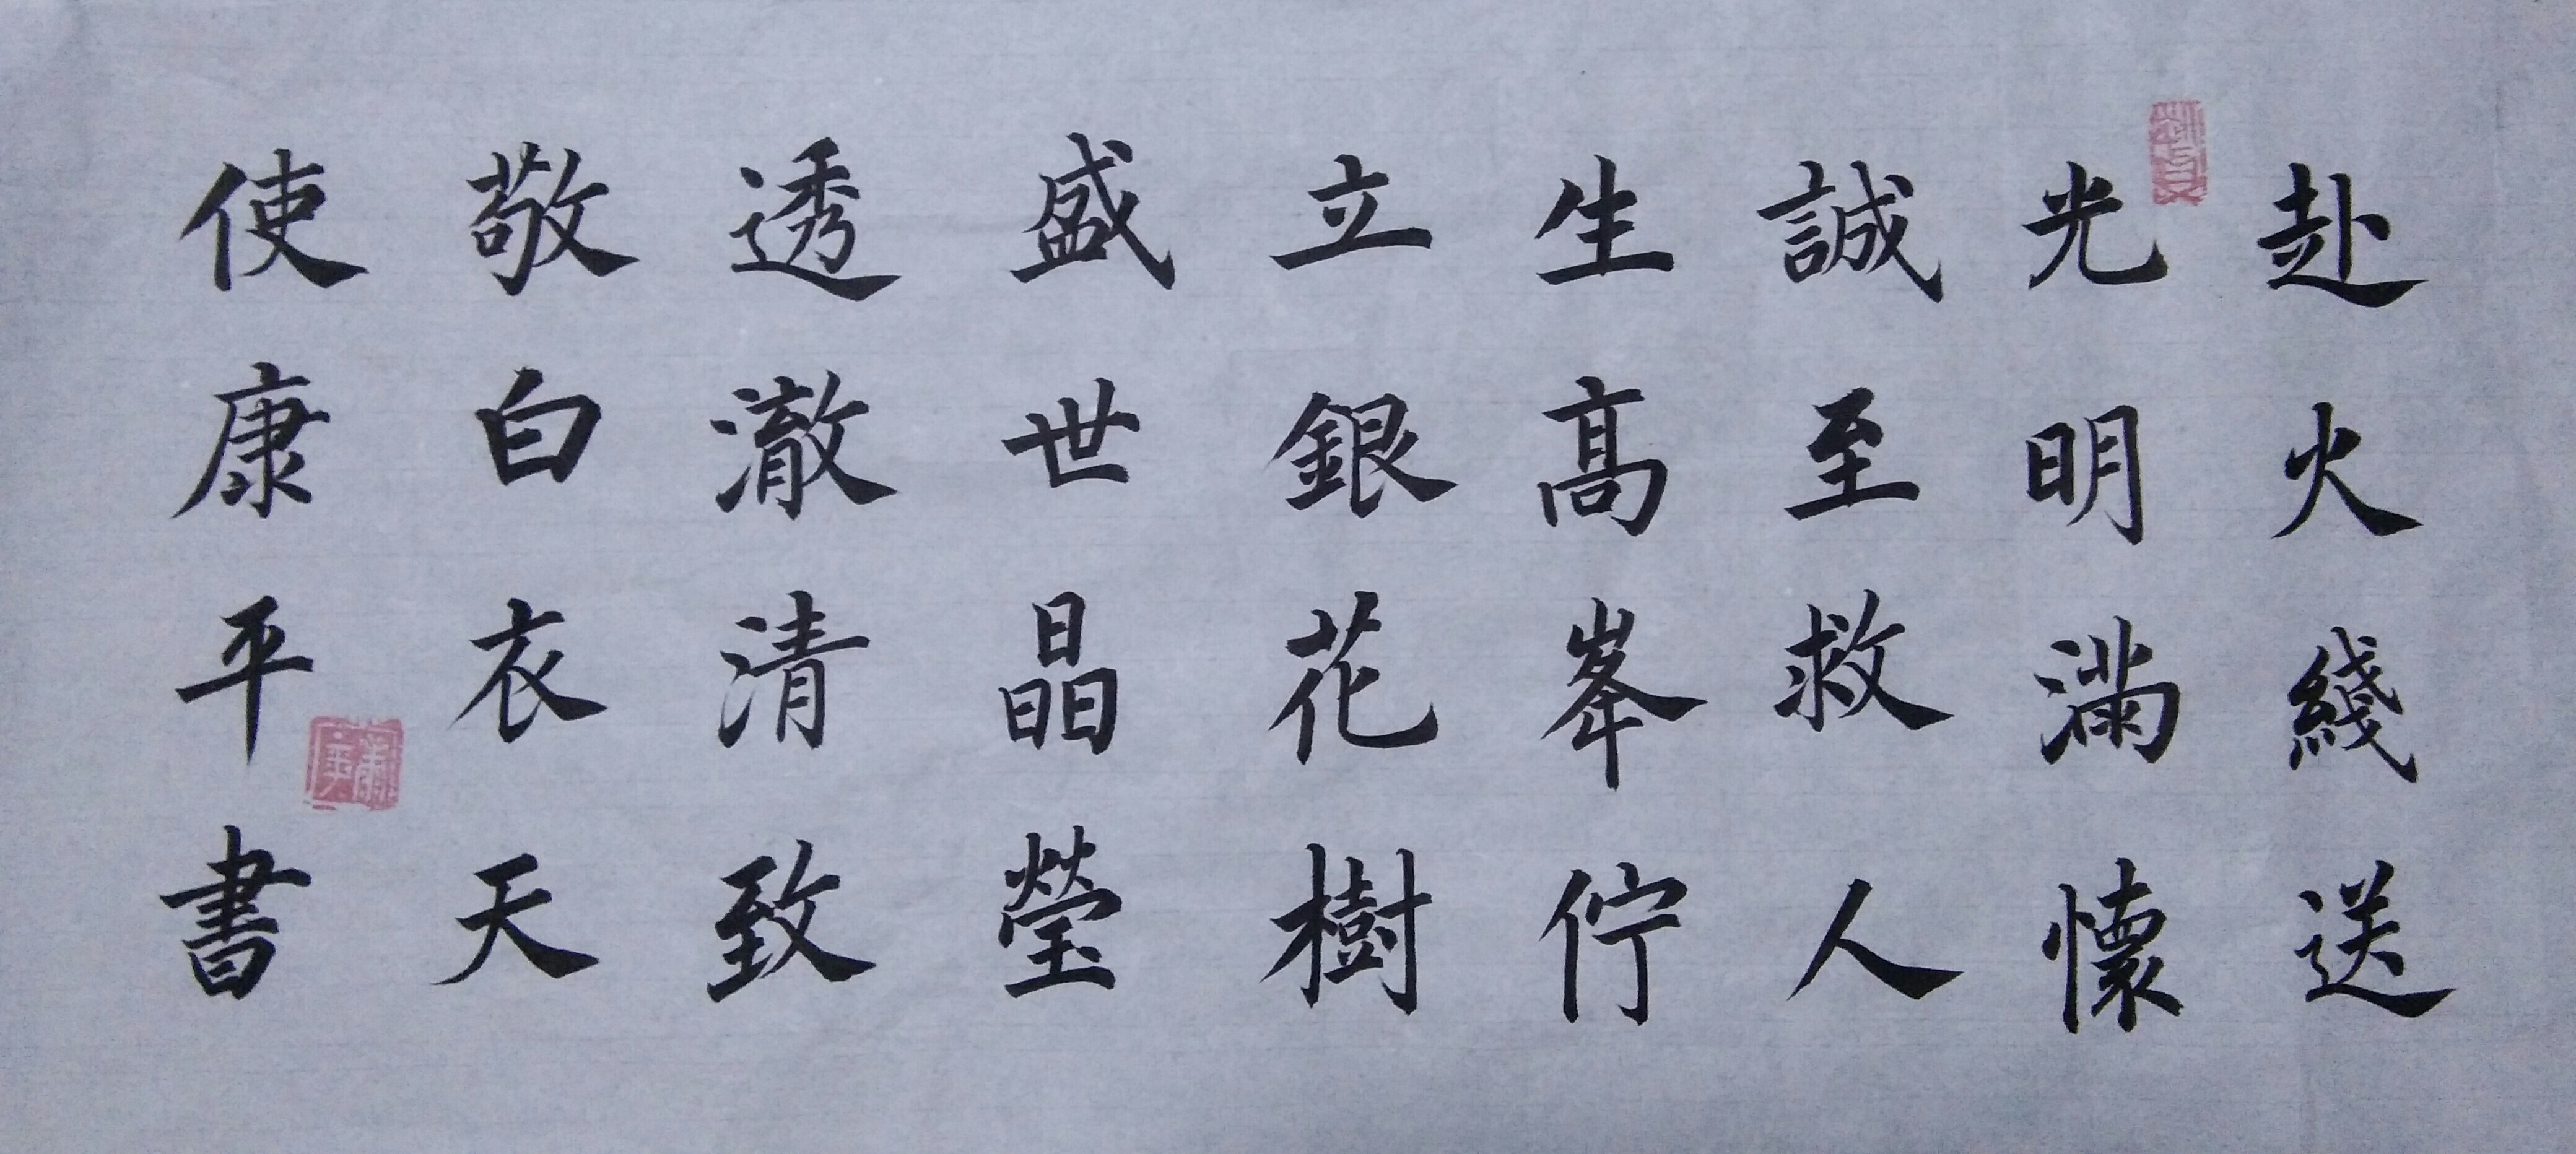 赴火綫送
光明滿懷
誠至救人
生高峯佇
立銀花樹
盛世晶瑩
透澈清致
敬白衣天
使康平書